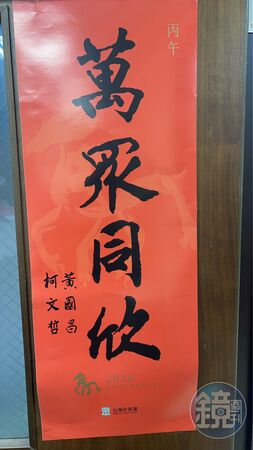 丙午
萬眾同欣
黃國昌
柯文哲
2026
HAPPY NEW YEAR
台灣民眾黨
鏡週刊